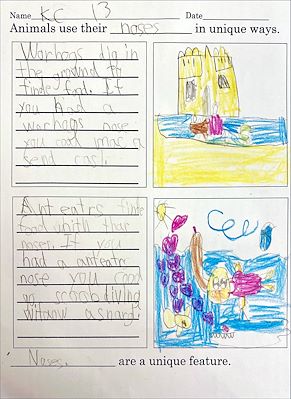 Name KC 13 Date
Animals use their noses in unique ways.
Warhogs dig in
the ground to
finde fod. If
you had a
warhogs nose
you cood mac a
send casl.
Ant eatrs finde
food whith thar
noses. If you
had a anteatr
nose you cood
go scoobdiving
a
Noses, are a unique feature.